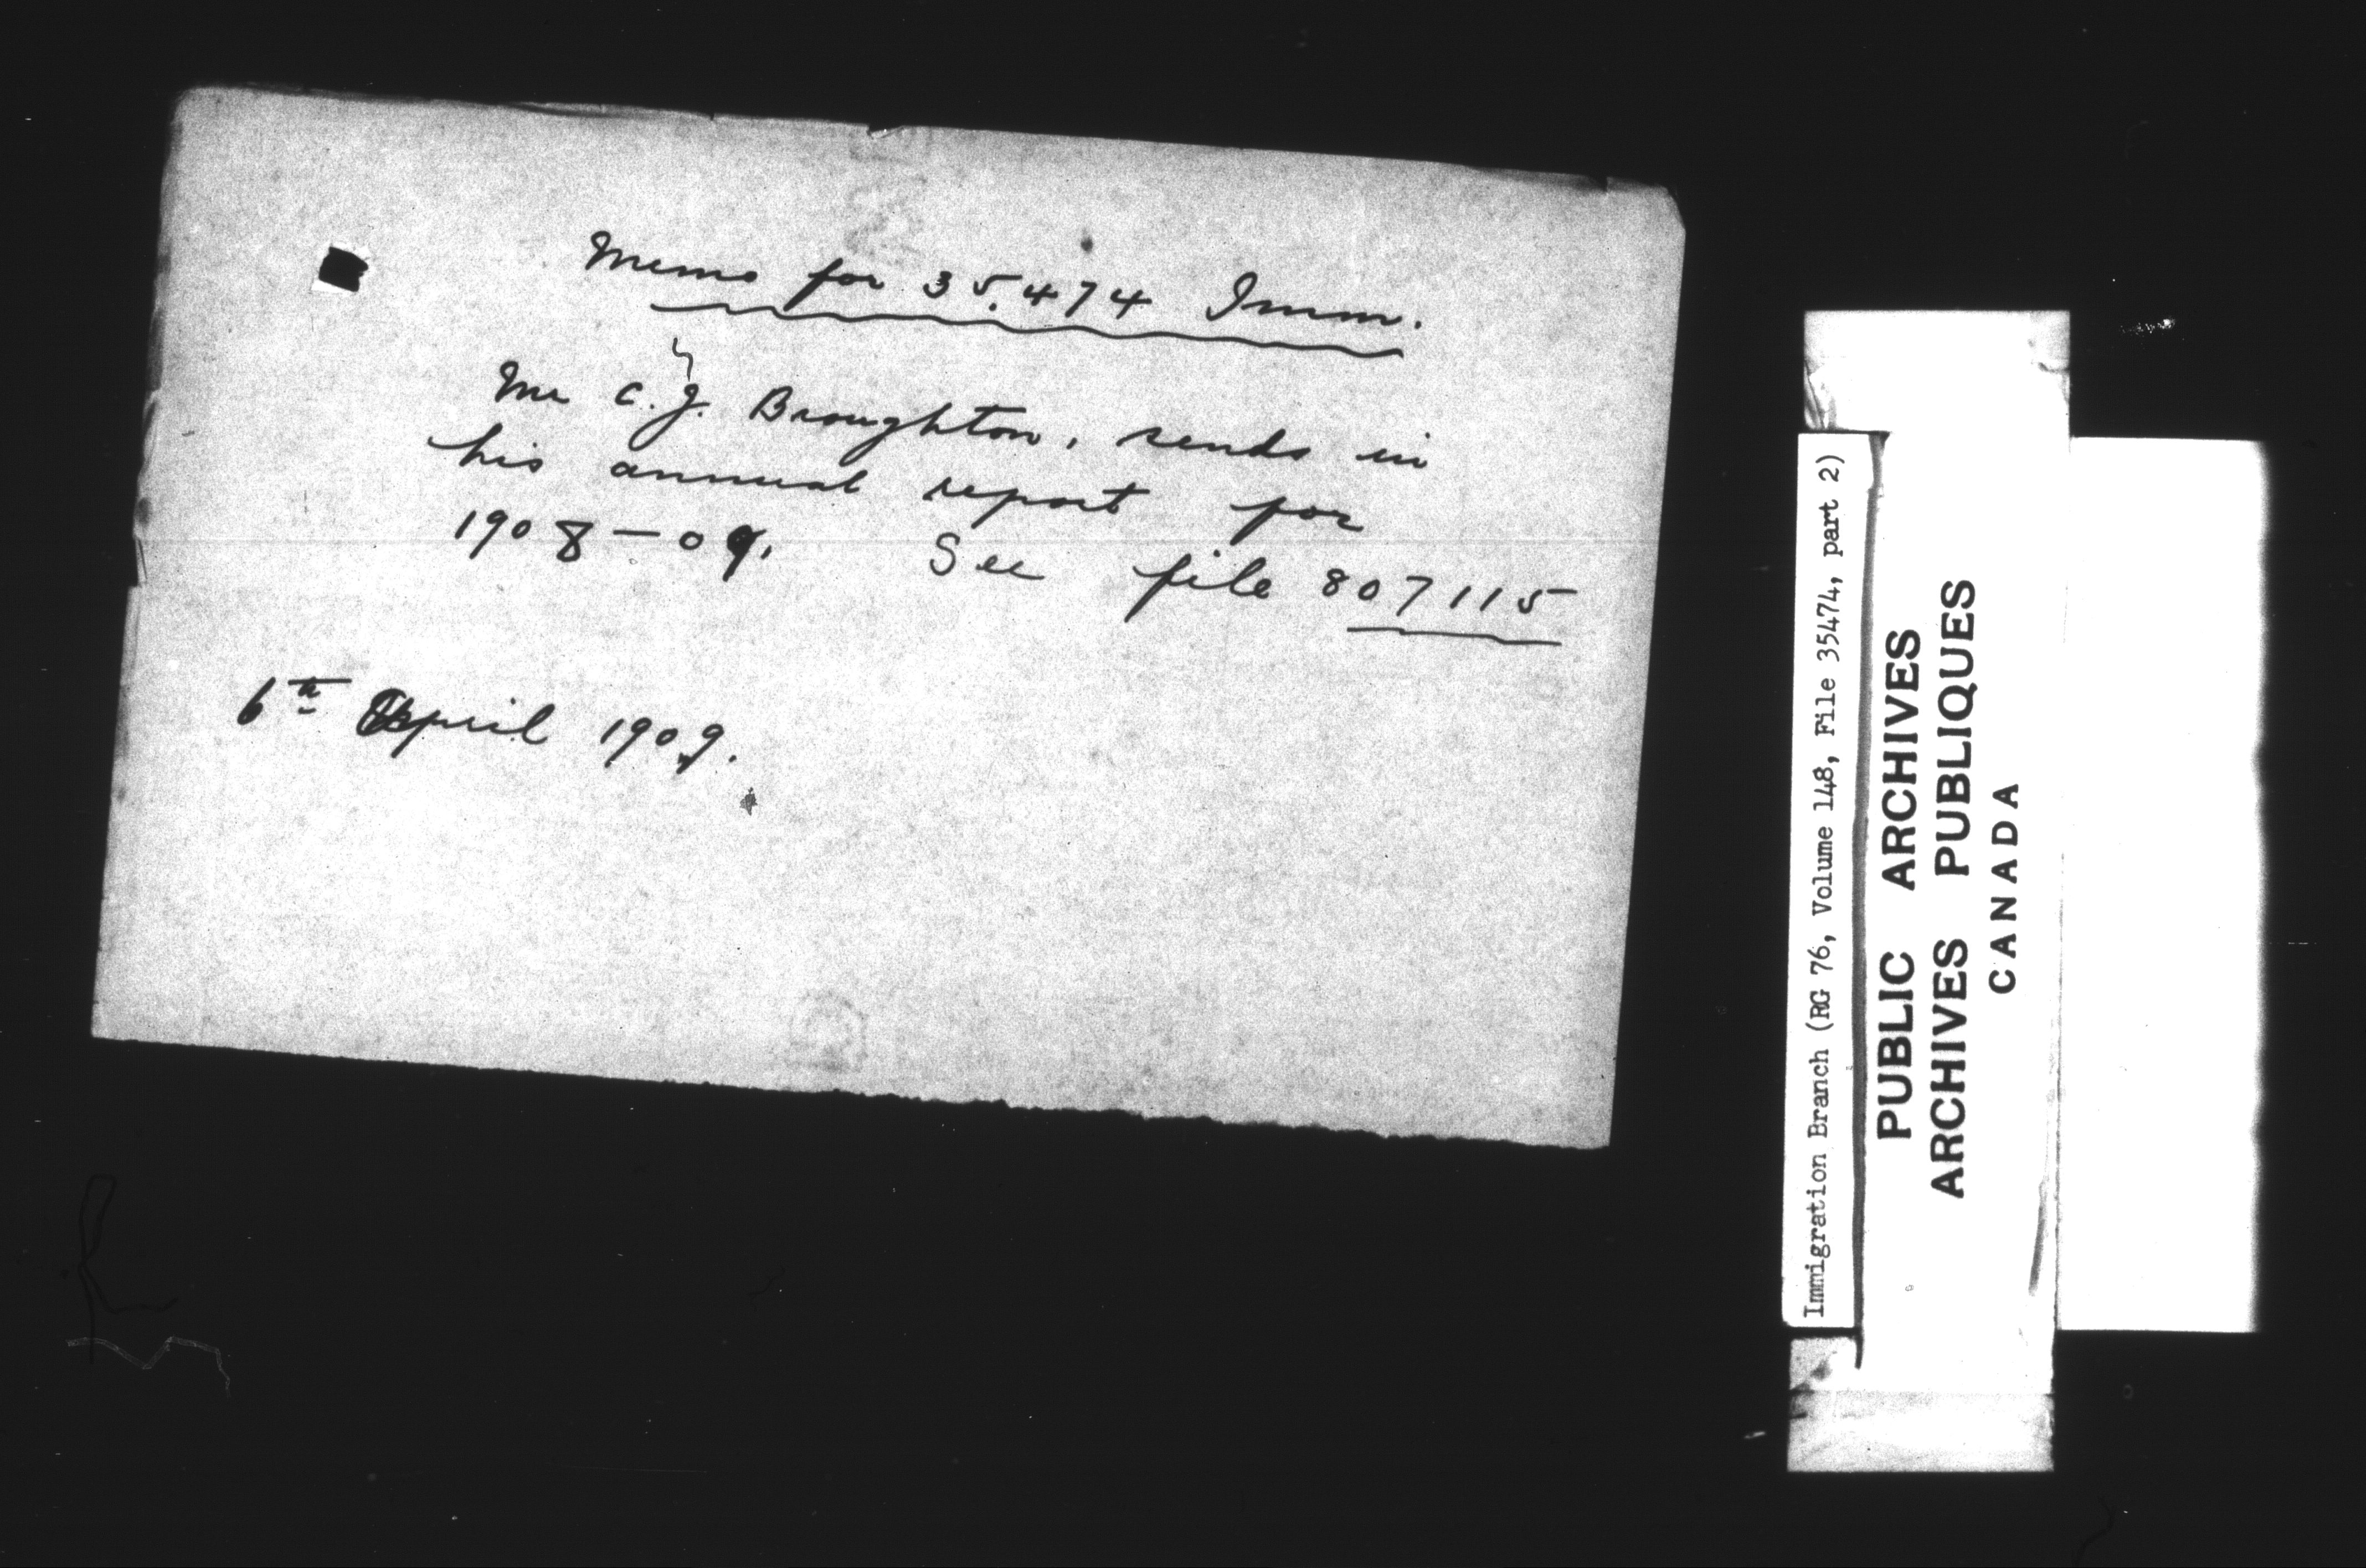 Memo for 35.474 Imm.
Mr C.J. Broughton, sends in
his annual report for
1908-09. See file 807115
6th April 1909.
Immigration Branch (RG 76, Volume 148, File 35474, part 2)
PUBLIC ARCHIVES
ARCHIVES PUBLIQUES
CANADA